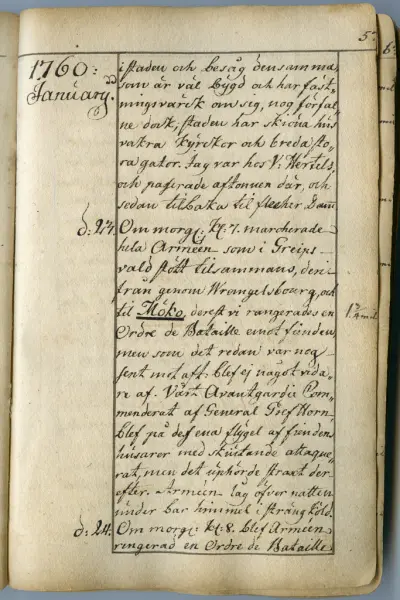 5.
1760:
January.
i staden och besåg densamma,
som är väl bygd och har fäst-
ningsvärck om seg, nog förfal-
ne dock; staden har skiöna hus
vakra kyrckor och breda sto-
ra gator. Jag var hos V: Wertels,
och paserade aftonnen där, och
sedan tilbaka til flecher Dam
d: 23. Om morg: kl: 7. marcherade
hela Arméen som i Greips-
vald stött tilsammans, deri-
från genom Wrangelsbourg, och
til Möko, derest vi rangerades en
Ordre de Bataille emot fienden,
men som det redan var nog
sent mot aft: blef ej något vida-
re af. Vårt Avantgardie Com-
menderat af General Gref Horn
blef på des ena flygel af fiendens
husarer med skiutande attaque-
rat, men det uphörde straxt der-
efter. Arméen låg öfver natten
under bar himmel i sträng köld.
d: 24. Om morg: kl: 8. blef Arméen
rangerad en Ordre de Bataille